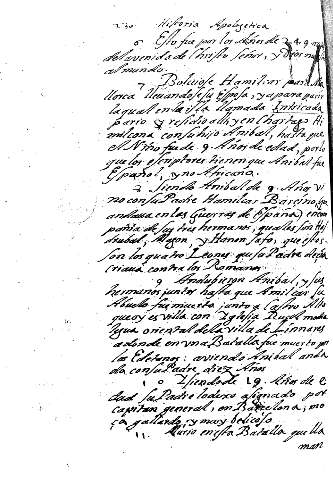 230 Historia Apologetica
6 Esto fue por los Años de
de la venida de Christo Señor, y
al mundo.
7 Bolviose Hamilcar
llorca llevandose su Esposa, y
la qual en la isla llamada
pario y residio alli, y en Charta
con su hijo Anibal, hasta que
el Niño fue de 9 Años de edad, por lo
que los escriptores tienen que Anibal fue
Español, y no Africano.
8 Siendo Anibal de 9 Años vi
no con su Padre Hamilcar Barcino,
andava en las Guerras de España) en com
pania de sus tres hermanos, quales son Has
drubal, Magon, y Hanon
son los quatro Leones que su Padre decia
criava contra los Romanos.
9 Anduvieron Anibal, y sus
hermanos juntos hasta que Amilcar su
fue muerto junto a Castro Alto
que oy es villa con Iglesia
oriental de la villa de Linares
a donde en una Batalla fue muerto por
los Edetanos: aviendo Anibal anda
do con su Padre diez Años
10 Y siendo de 19 Años de e
dad su Padre lo dexo asignado por
capitan general, en Barcelona; mo
ço gallardo, y muy belicoso
11 Murio en esta Batalla que lla
man